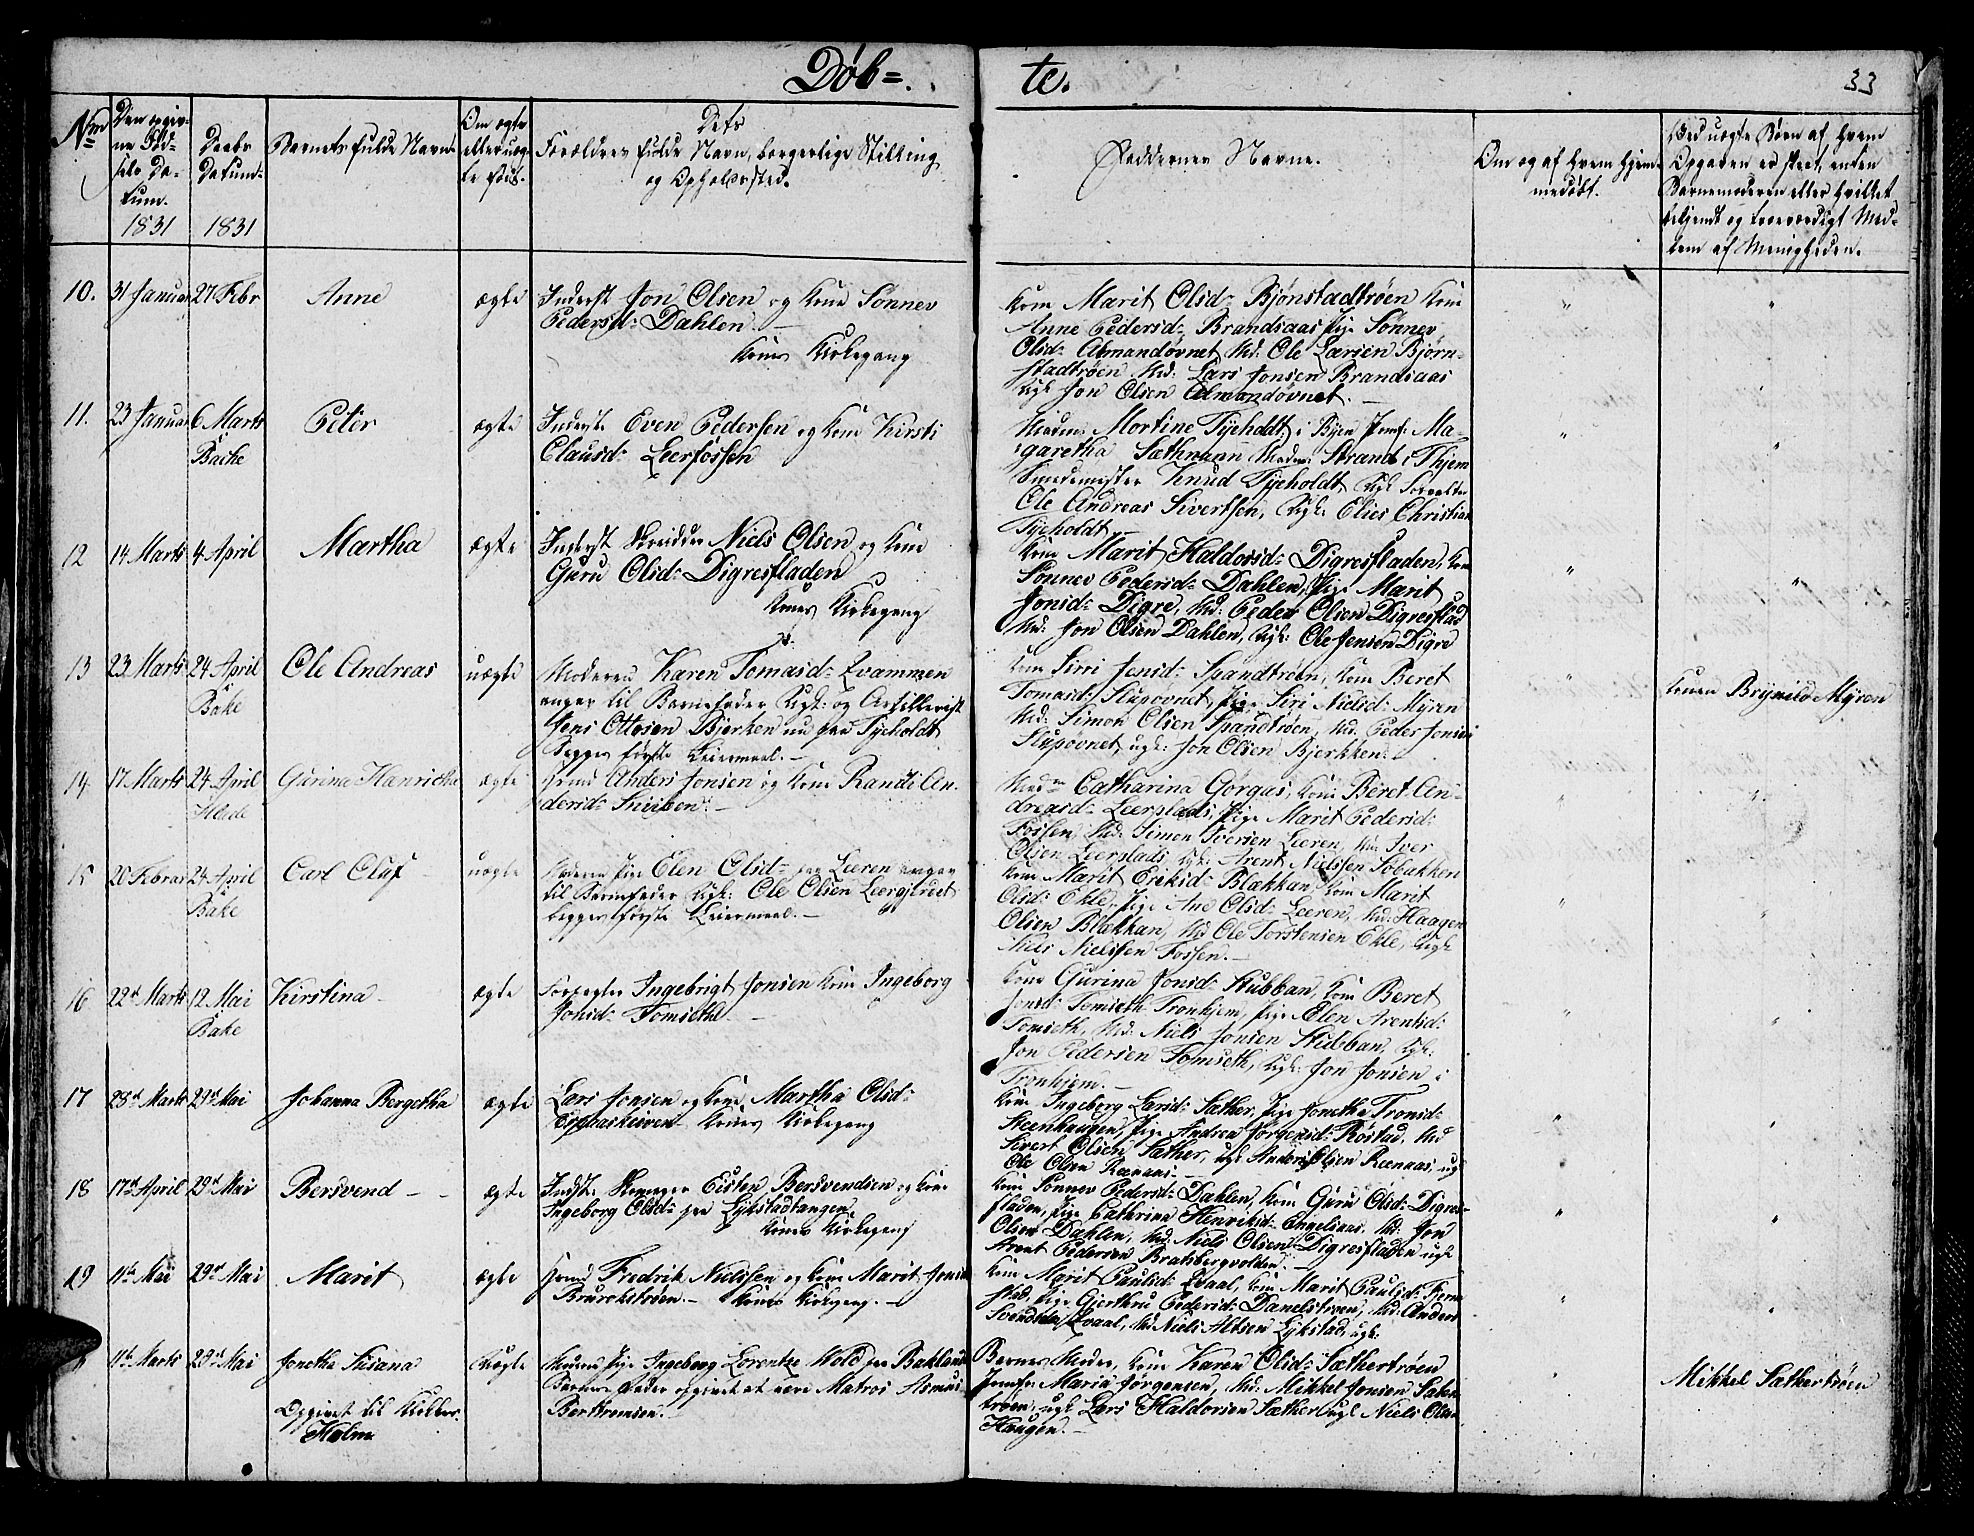 Døb= te. 33
No
Den opgiv-
ne Fød-
sels Da-
tum.
1831
Daabs
Datum.
1831
Barnets fulde Navn
Om ægte
eller uæg-
te født.
Dets
Forældres fulde Navn, borgerlige Stilling
og Opholdssted.
Faddernes Navne.
Om og af hvem hjem-
medøbt.
Ved uægte Børn af hvem
Opgaven er skeet, enten
Barnemoderen eller hvilket
bekjendt og troværdigt Med-
lem af Menigheden.
10. 31 Januar 27 Febr Anne ægte Inderst Jon Olsen og Kone Sønnev
Pedersd: Dahlen. —
Kones Kirkegang
Kone Marit Olsd: Bjønstadtrøen Kone
Anne Pedersd: Brandsaas Pige Sønnev
Olsd: Almandøvnet, Md: Ole Larsen Bjørn-
stadtrøen Md: Lars Jonsen Brandsaas
Ugk Jon Olsen Almandøvnet. —
11. 23 Januar 6 Marts
Bake
Peter ægte Inderste Even Pedersen og Kone Kirsti
Clausd: Leerfossen
Madm: Mortine Tyeholdt i Byen Jomf: Ma-
garetha Sæthmann Madm: Strand i Thjem
Smedemester Knud Tyeholdt, Ugk
Ole Andreas Sivertsen, Ugk: Elies Christian
Tyeholdt —
12 14 Marts 4 April Martha ægte Inderst Skrædder Niels Olsen og Kone
Guru Olsd: Digresfladen
Kones Kirkegang
Kone Marit Haldorsd: Digresfladen, Kone
Sønnev Pedersd: Dahlen, Pige Marit
Jonsd: Digre, Md: Peder Olsen Digresflad
Md: Jon Olsen Dahlen, Ugk: Ole Jensen Digre
13 23 Marts 24 April
Bake
Ole Andreas uægte Moderen Karen Tomasd: Qvammen
angav til Barnefader Ugk: og Artillerist
Jens Ottesen Bjerken nu paa Tyeholdt
Begges første Leiermaal. —
Kone Sirri Jensd: Spandtrøen, Kone Beret
Tomasd: Slupovnet, Pige Siri Nielsd: Myren
Md: Simon Olsen Spandtrøen, Md: Peder Jonsen
Slupøvnet, ugk: Jon Olsen Bjerkken. —
Konen Brynild Myren
14 17 Marts 24 April
Gurina Hanricka ægte Gmd Anders Jonsen og Kone Randi An-
dersd: —
Madm Catharina Görgas, Kone Beret An-
dreasd: Leerslads, Pige Marit Pedersd:
Fossen, Md: Simon Iversen Leeren, Md: Iver
Olsen Leerslads, Ugk: Arent Nielssen Søbakken
15 20 Februar 24 April
Bake
Carl Oluf uægte Moderen Pige Elen Olsd: paa Leeren angav
til Barnefader Ugk: Ole Olsen Leergjerdet
begges første Leiermaal. —
Kone Marit Eriksd: Blækkan, Kone Marit
Olsd: Ekle, Pige Ane Olsd: Leeren, Md: Haagen
Olsen Blækkan, Md Ole Torstensen Ekle, Ugk
Niels Nielssen Fossen. —
16 22de Marts 12 Mai
Bake
Kirstina ægte Forpagter Ingebrigt Jonsen Kone Ingeborg
Jonsd: Tomseth —
Kone Gurina Jonsd: Stubban, Kone Beret
Jonsd: Tomseth Tronhjem, Pige Elen Arentsd:
Tomseth, Md: Niels Jonsen Stubban, Ugk:
Jon Pedersen Tomseth, Ugk: Jon Jonsen i
Tronhjem. —
17 28de Marts 29de Mai Johanna Bergetha ægte Lars Jonsen og Kone Martha Olsd:
Kones Kirkegang
Kone Ingeborg Larsd: Sæther, Pige Jonetha Tronsd:
Steenhaugen, Pige Andrea Jörgensd: Røstad, Md
Sivert Olsen Sæther, ugk Anders Olsen Reenaas, ugk
Ole Olsen Reenaas —
18 17de April 29de Mai Bersvend ægte Indst: Eisten Bersvendsen og Kone
Ingeborg Olsd: paa Lykstadtangen,
Kones Kirkegang
Kone Sønnev Pedersd: Dahlen, Kone Guru Olsd: Digres-
fladen, Pige Cathrina Henriksd: Engelsaas, Md: Jon
Olsen Dahlen, Md: Niels Olsen Digresfladen ugk
Arent Pedersen Bratsbergvolden. —
19 11te Mai 29de Mai Marit ægte Gmd Fredrik Nielssen og Kone Marit Jonsd
Brurokstrøen. — Kones Kirkegang. —
Kone Marit Paulsd: Qvaal, Kone Marit Paulsd:
Pige Gjerthru Pedersd: Danelstrøen, Md: Anders
Svendsen Qvaal, Md: Niels Altsen Lykstad, ugk:
11te Marts 29de Mai Jonetha Susana
Opgivet til
Holm
uægte Moderen Pige Ingeborg Lorentze Wold paa Baklandet
Barnets Fader opgivet at være Matros Asmus
Berthromsen. —
Barnets Moder, Kone Karen Olsd: Sæthertrøen
Jomfr: Maria Jörgensen, Md: Mikkel Jonsen Sæther-
trøen, ugk Lars Haldorsen Sæther ugk Niels Olsen
Haugen. —
Mikkel Sæthertrøen